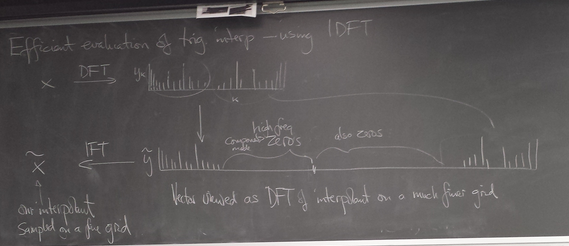 Efficient evaluation of trig interp – using IDFT
x DFT yₖ
k
high freq
components zeros
also zeros
x̃ IFT ỹ
N
our interpolant
sampled on a fine grid
Vector viewed as DFT of interpolant on a much finer grid